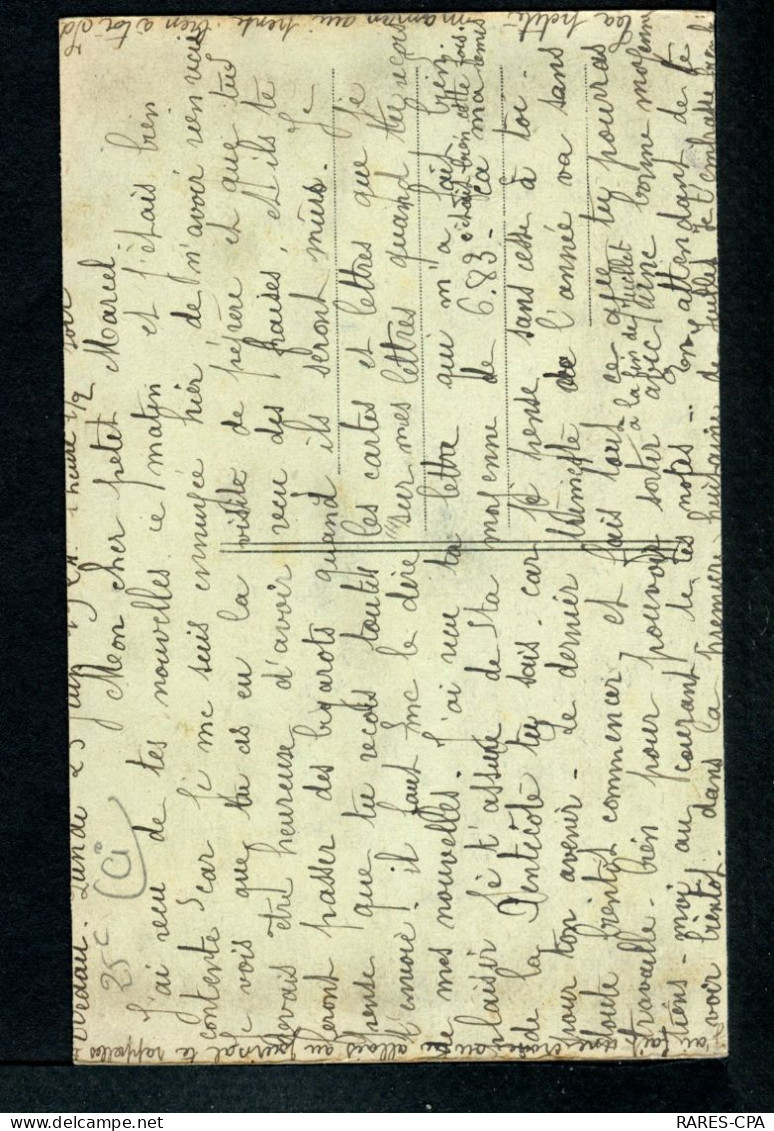 Lundi 23 juin 1924. 1 heure 1/2 soir
Mon cher petit Marcel
J'ai reçu de tes nouvelles ce matin et j'étais bien
contente car je me suis ennuyée hier de n'avoir rien reçu
Je vois que tu as eu la visite de pépère et que tu
devais être heureuse d'avoir veu des fraises, et ils te
feront passer des bigarots quand ils seront mûrs. Je
pense que tu reçois toutes les cartes et lettres que je
t'envoie! il faut me le dire sur mes lettres quand tu reçois
de mes nouvelles. J'ai reçu ta lettre qui m'a fait bien
plaisir je t'assure de ta moyenne de 6.83 - c'était bien cette fois. ça m'a remis
de la Pentecôte tu sais. car je pense sans cesse à toi.
pour ton avenir - Le dernier trimestre de l'année va sans
doute bientôt commencer et fais tout ce que tu pourras
travaille bien pour pouvoir sortir à la fin de Juillet avec une bonne moyenne
tiens-moi au courant de tes notes - en attendant de te
voir bientôt. dans la première huitaine de juillet je t'embrasse
ta petite maman qui pense bien à toi
25 c
RARES-CPA